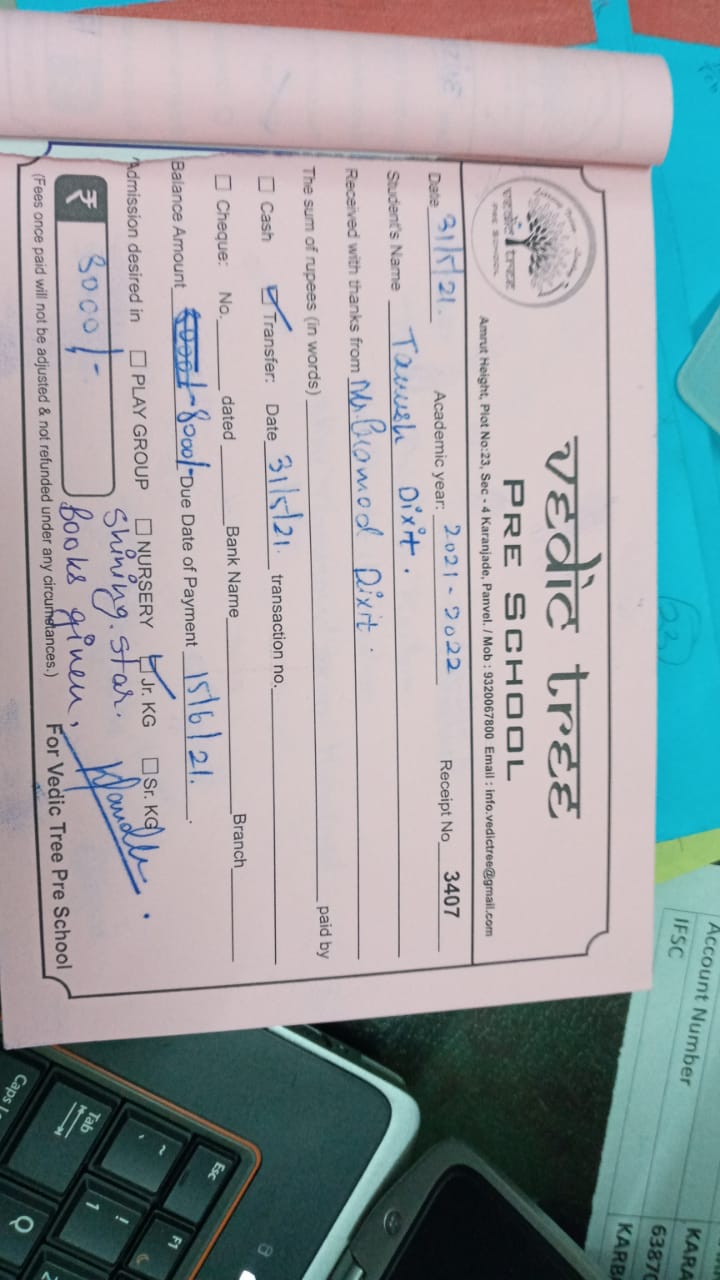 vedic tree
PRE SCHOOL
vedic tree
PRE SCHOOL
Amrut Height, Plot No:23, Sec - 4 Karanjade, Panvel. / Mob : 9320067800 Email : info.vedictree@gmail.com
Date 31/5/21. Academic year: 2021-2022 Receipt No 3407
Student's Name Tanish Dixit.
Received with thanks from Mr. Pramod Dixit.
The sum of rupees (in words) paid by
Cash Transfer: Date 31/5/21. transaction no.
Cheque: No. dated Bank Name Branch
Balance Amount 8000/- Due Date of Payment 15/6/21.
Admission desired in PLAY GROUP NURSERY Jr. KG Sr. KG
Shining star.
₹ 3000/- Books given.
(Fees once paid will not be adjusted & not refunded under any circumstances.) For Vedic Tree Pre School
Account Number
IFSC
KARA
6387
KARB
Esc
F1
Tab
Caps
~
!
1
Q